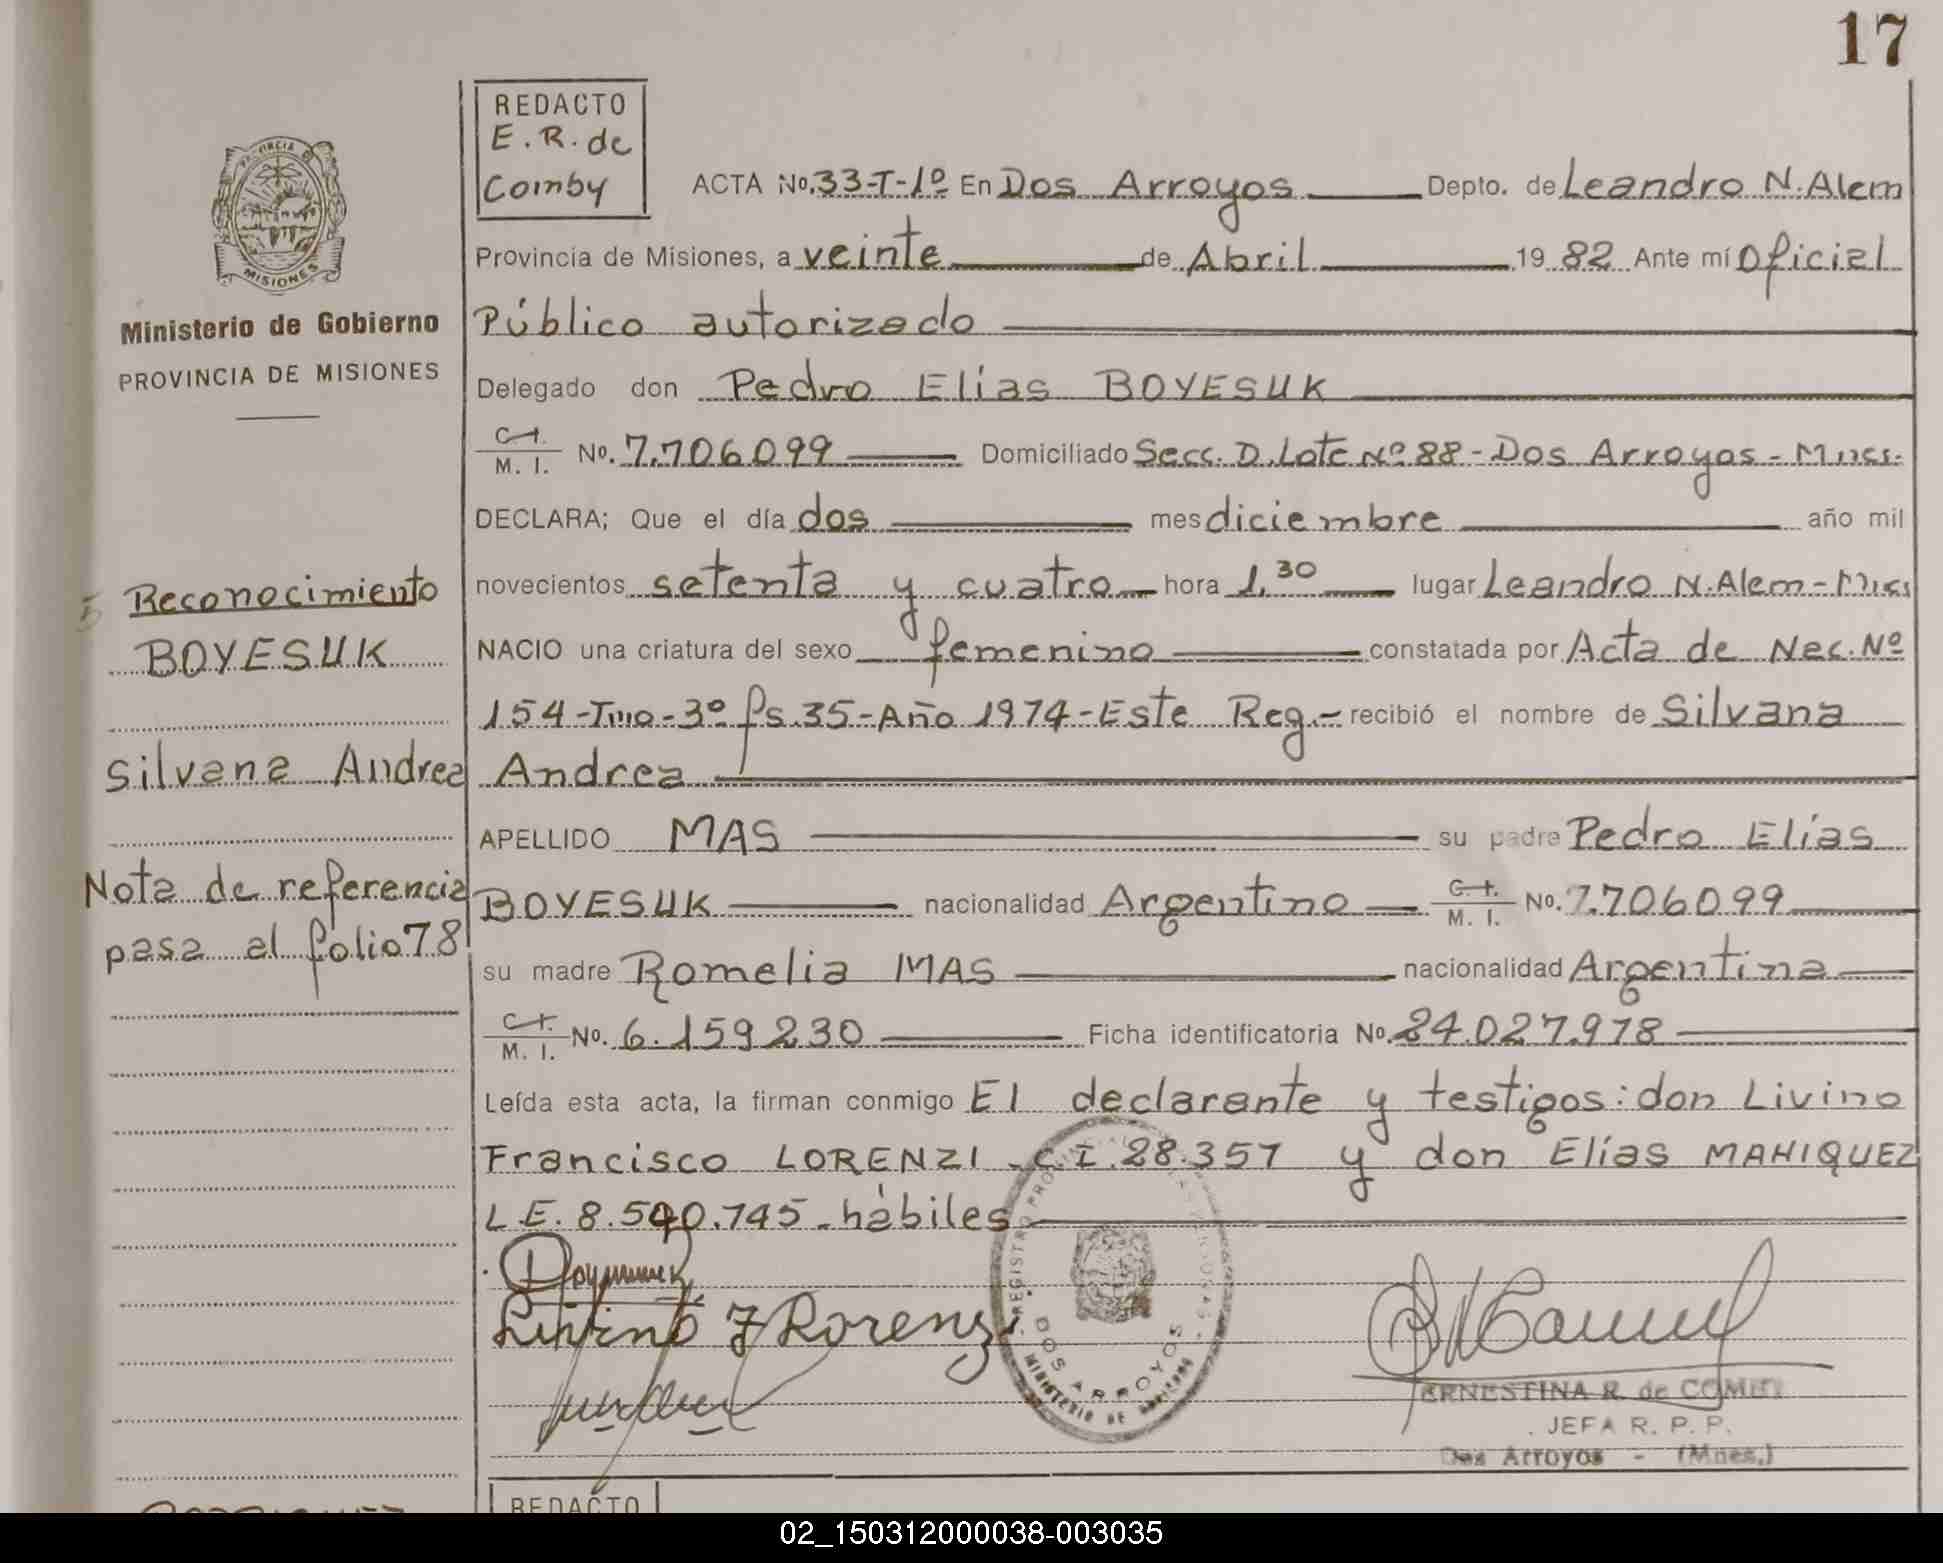 17
REDACTO
E. R. de
Comby
ACTA No. 33-T-1º En Dos Arroyos Depto. de Leandro N. Alem
Provincia de Misiones, a veinte de Abril 19 82 Ante mí Oficial
Público autorizado
Delegado don Pedro Elías BOYESUK
C. I. M. I. No. 7.706.099 Domiciliado Secc. D. Lote Nº 88 - Dos Arroyos - Mnes.
DECLARA; Que el día dos mes diciembre año mil
novecientos setenta y cuatro hora 1,30 lugar Leandro N. Alem - Mnes
NACIO una criatura del sexo femenino constatada por Acta de Nac. Nº
154 - Tmo - 3º fs. 35 - Año 1974 - Este Reg. - recibió el nombre de Silvana
Andrea
APELLIDO MAS su padre Pedro Elías
BOYESUK nacionalidad Argentino C. I. M. I. No. 7.706.099
su madre Romelia MAS nacionalidad Argentina
C. I. M. I. No. 6.159.230 Ficha identificatoria No. 24.027.978
Leída esta acta, la firman conmigo El declarante y testigos: don Livino
Francisco LORENZI - C.I. 28.357 y don Elías MAHIQUEZ
L.E. 8.540.745 - hábiles
Livino F Lorenzi
REGISTRO PROVINCIAL
DOS ARROYOS
MINISTERIO DE GOBIERNO
ERNESTINA R. de COMBY
JEFA R. P. P.
Dos Arroyos - (Mnes.)
PROVINCIA DE
MISIONES
Ministerio de Gobierno
PROVINCIA DE MISIONES
5 Reconocimiento
BOYESUK
Silvana Andrea
Nota de referencia
pasa al folio 78
REDACTO
02_150312000038-003035